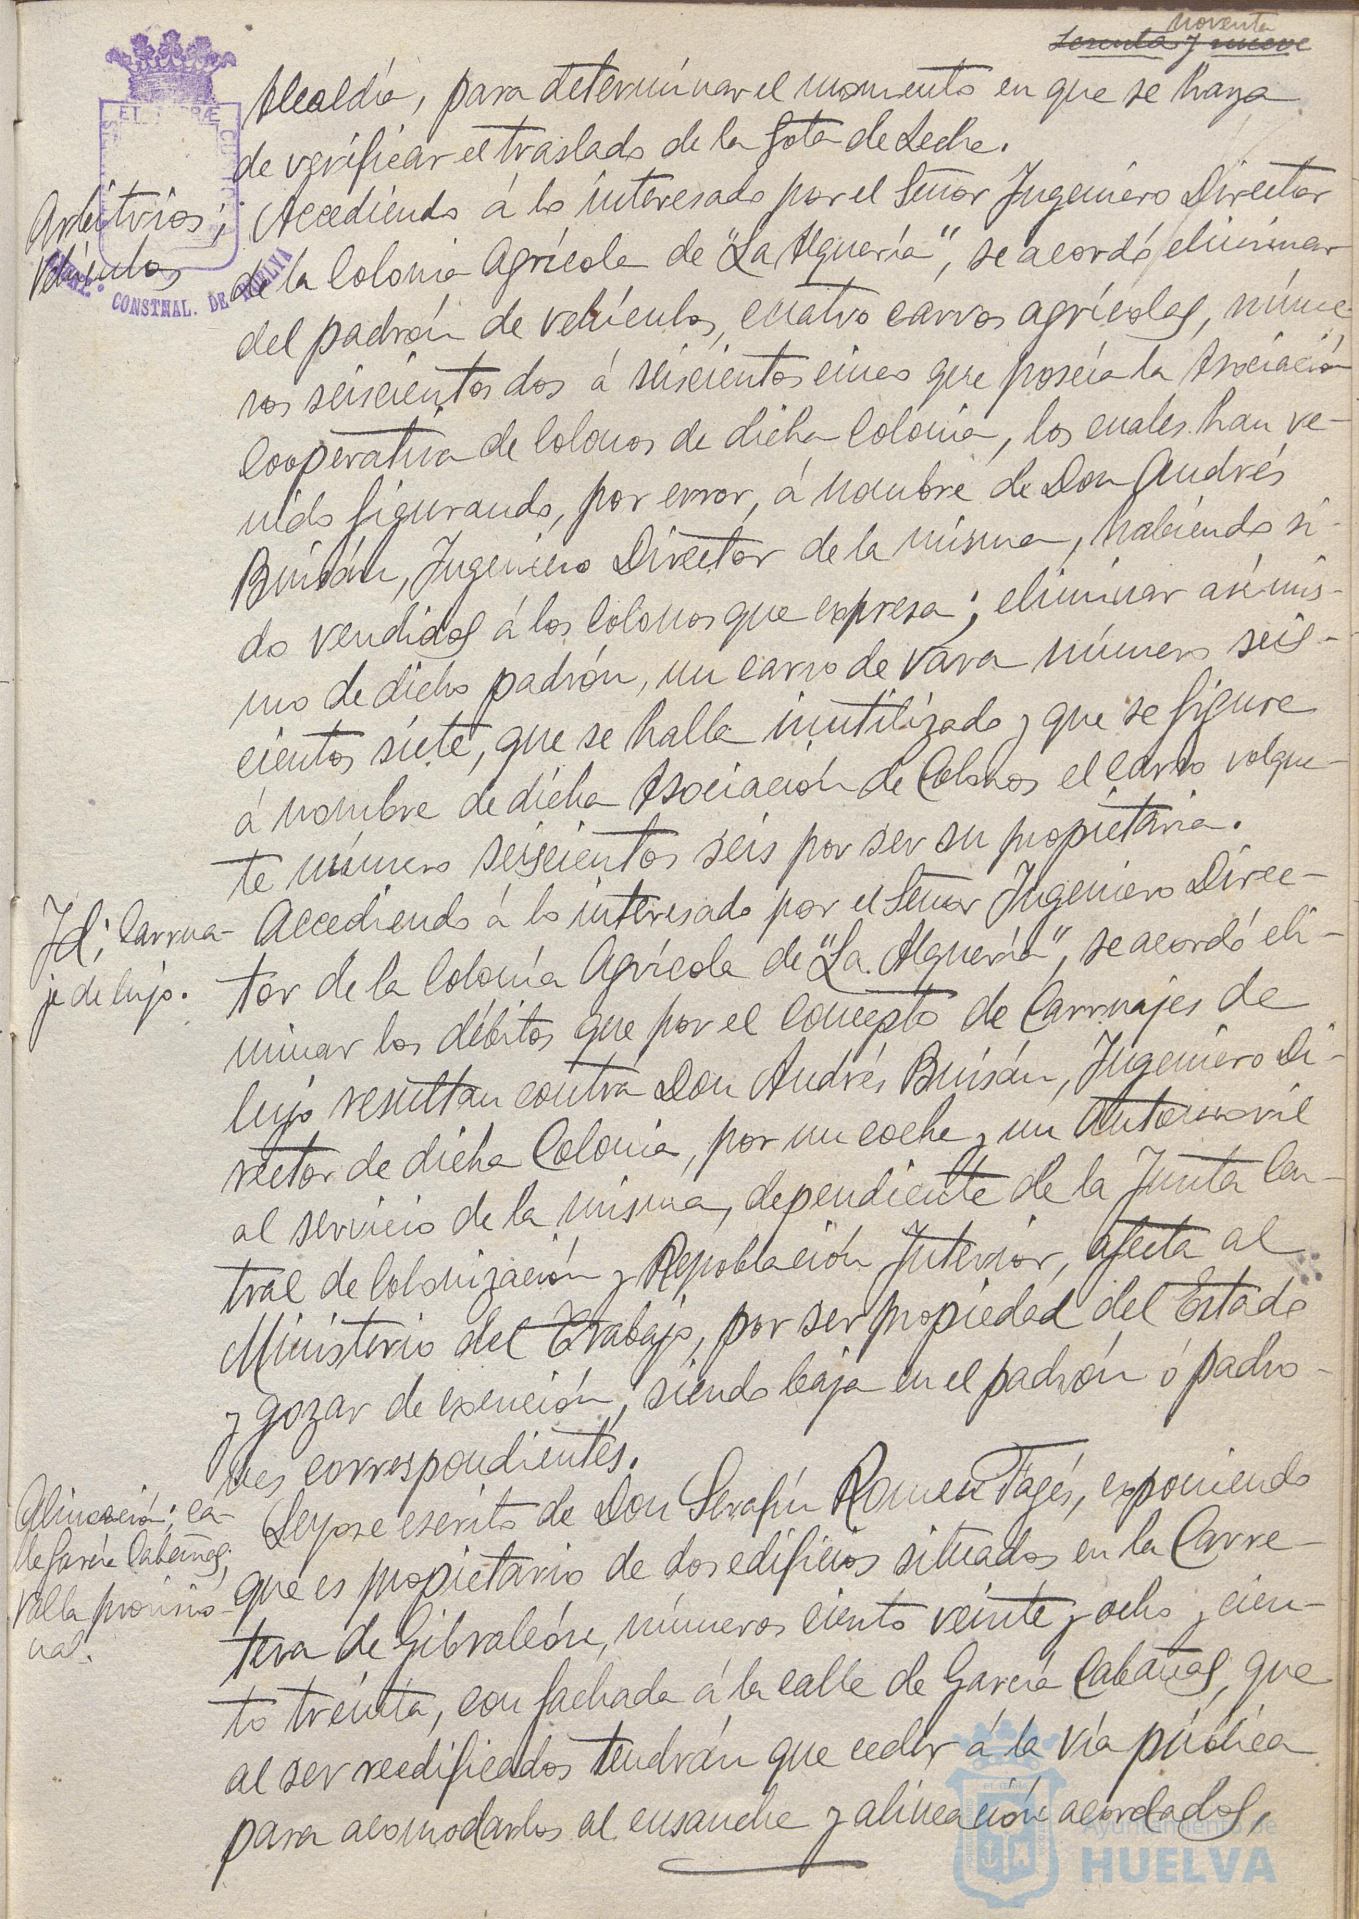 noventa
Sesenta y nueve
Alcaldía, para determinar el momento en que se haya
de verificar el traslado de la Gota de Leche.
Arbitrios;
Vehículos
Accediendo á lo interesado por el Señor Ingeniero Director
de la Colonia Agrícola de "La Alquería", se acordó eliminar
del padrón de vehículos, cuatro carros agrícolas, núme-
ros seiscientos dos á seiscientos cinco que poseía la Asociación
Cooperativa de Colonos de dicha Colonia, los cuales han ve-
nido figurando, por error, á nombre de Don Andrés
Buisán, Ingeniero Director de la misma, habiendo si-
do vendidos á los Colonos que expresa; eliminar asímis-
mo de dicho padrón, un carro de vara número seis-
cientos siete, que se halla inutilizado y que se figure
á nombre de dicha Asociación de Colonos el carro volque-
te número seiscientos seis por ser su propietaria.
Id; Carrua-
je de lujo.
Accediendo á lo interesado por el Señor Ingeniero Direc-
tor de la Colonia Agrícola de "La Alquería", se acordó eli-
minar los débitos que por el concepto de Carruajes de
lujo resultan contra Don Andrés Buisán, Ingeniero Di-
rector de dicha Colonia, por un coche y un Automovil
al servicio de la misma, dependiente de la Junta Cen-
tral de Colonización y Repoblación Interior, afecta al
Ministerio del Trabajo, por ser propiedad del Estado
y gozar de exención, siendo baja en el padrón ó padro-
nes correspondientes.
Alineación; ca-
lle García Cabañas,
valla provisio-
nal.
Leyose escrito de Don Serafín Romeu Fagés, exponiendo
que es propietario de dos edificios situados en la Carre-
tera de Gibraleón, números ciento veinte y ocho y cien-
to treinta, con fachada á la calle de García Cabañas, que
al ser reedificados tendrán que ceder á la vía pública
para acomodarlos al ensanche y alineación acordados,
CONSTNAL. DE HUELVA
Ayuntamiento de
HUELVA